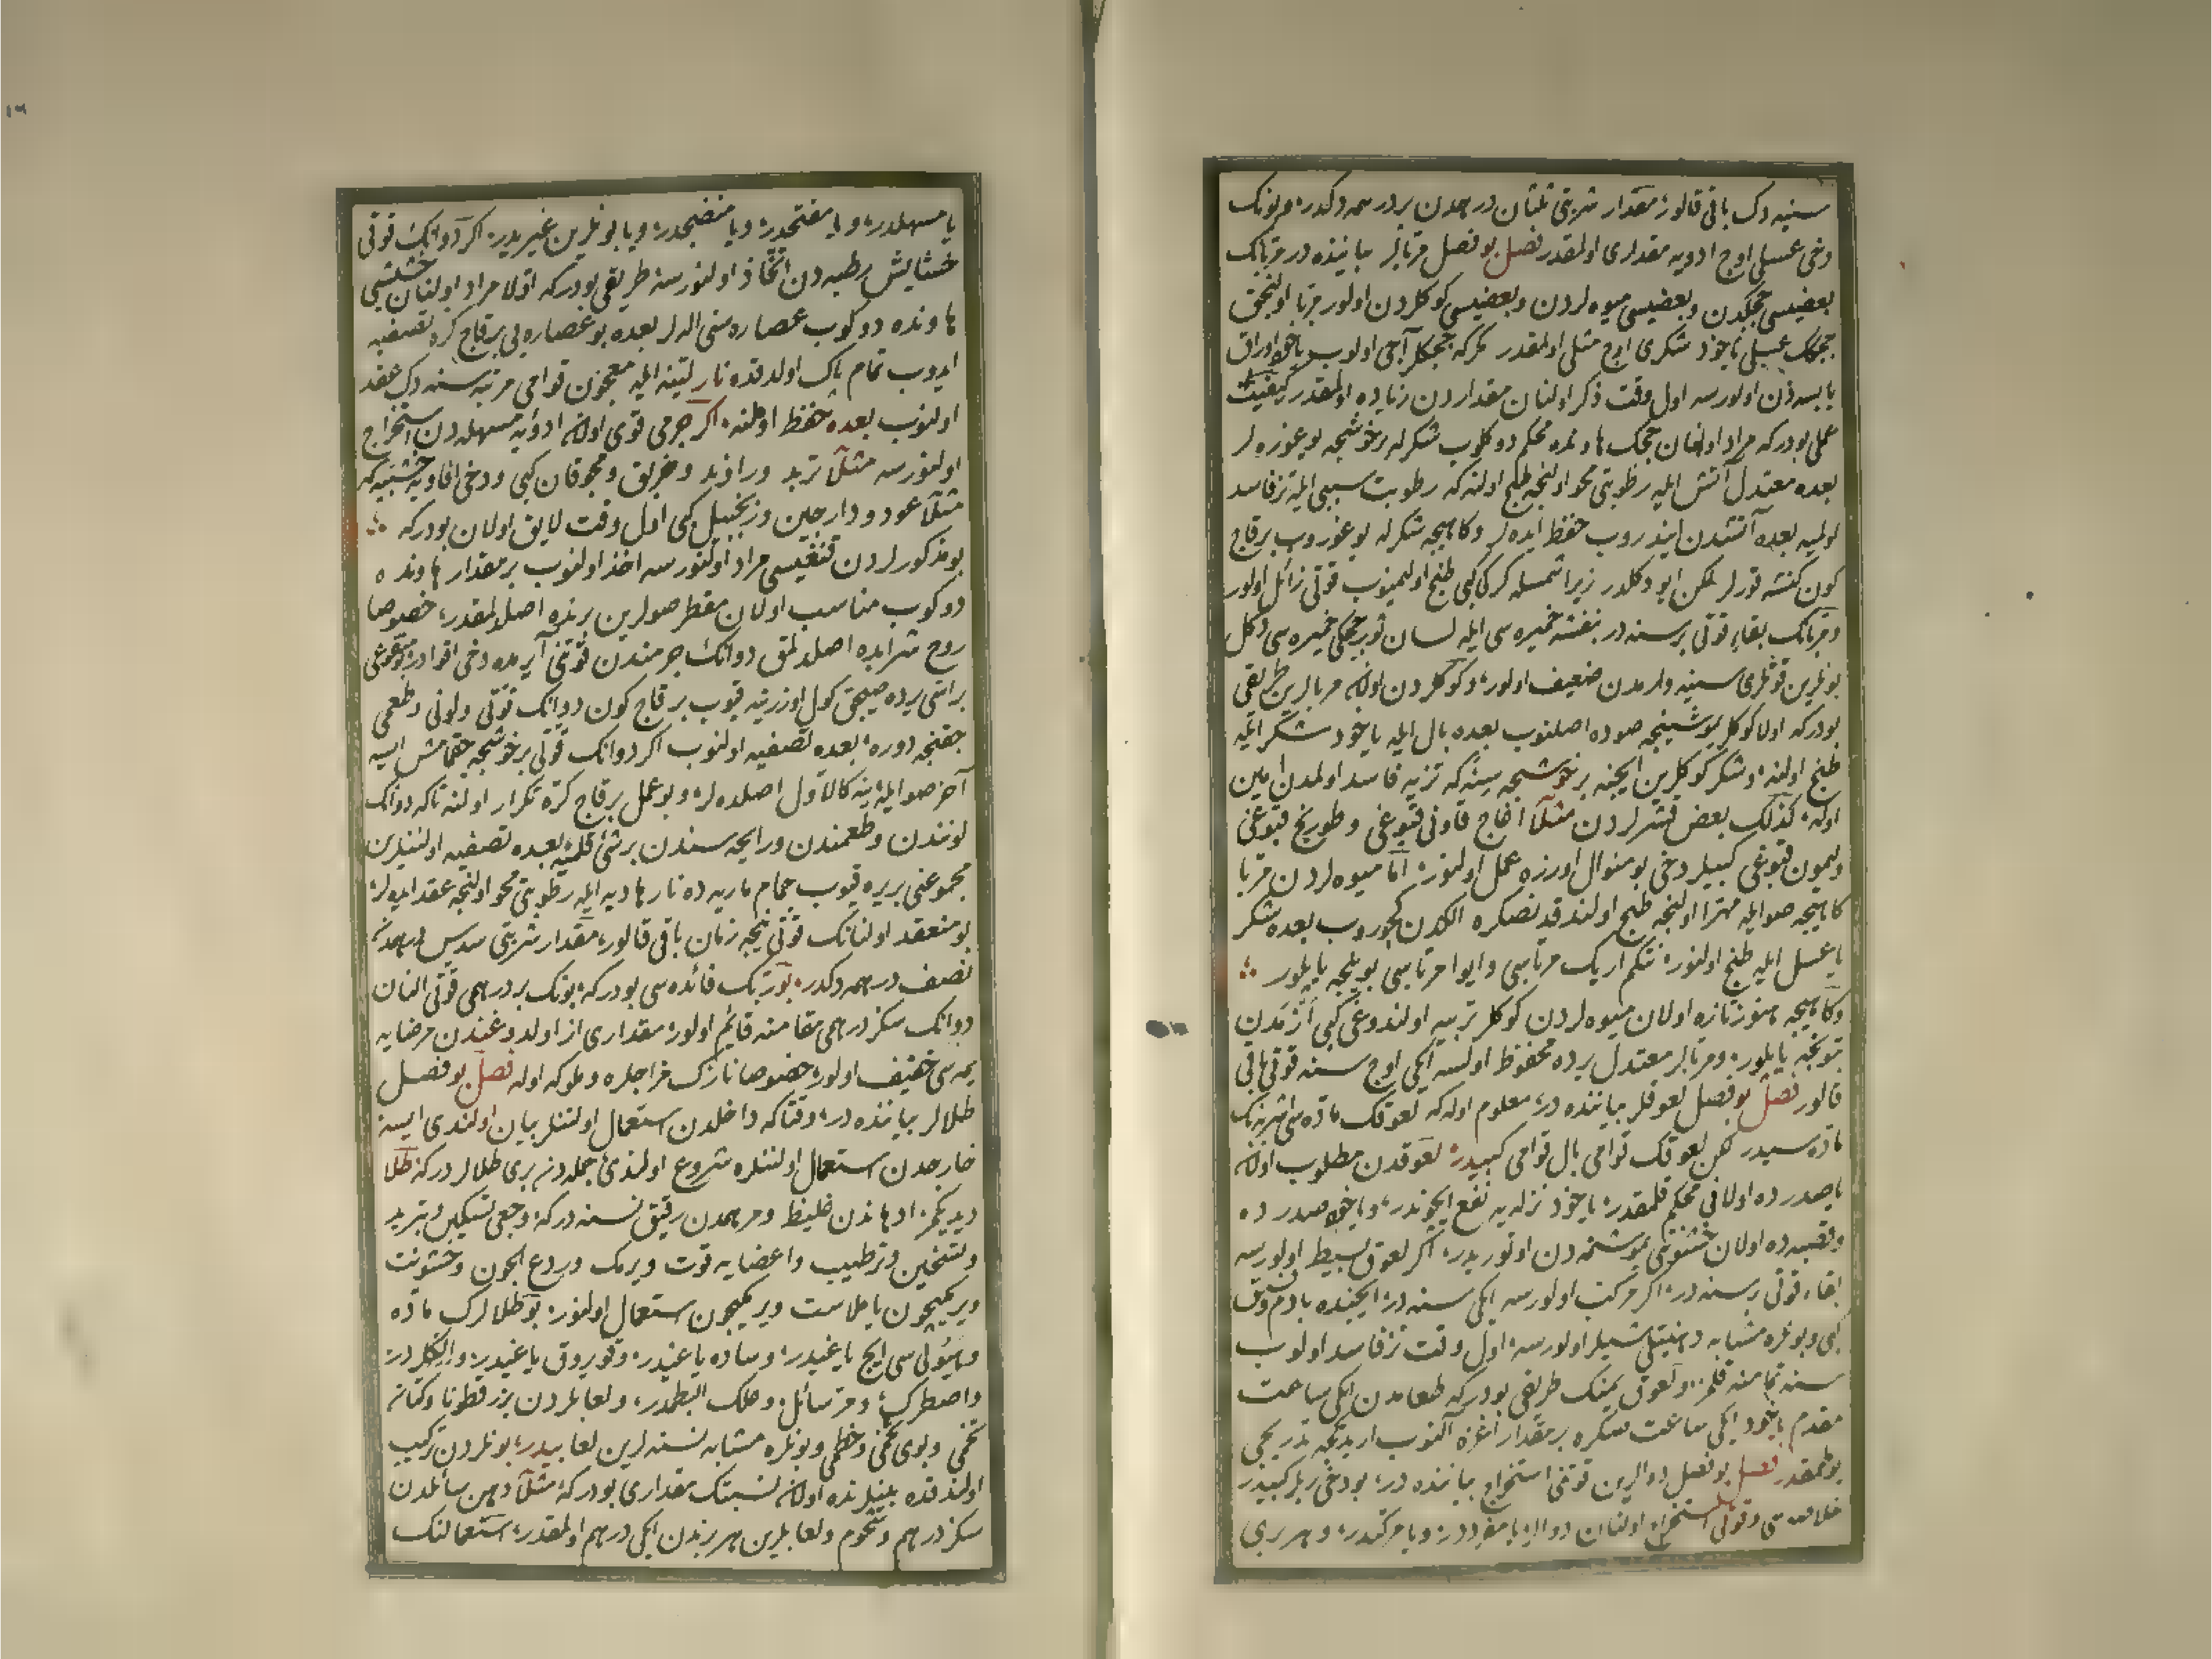 سنیه دک باقی قالور مقدار شربتی ثلثان درهمدن بر درهمه دکدر
دخی عسلی اوج ادویه مقداری اولمقدر فصل بو فصل مربالر بیاننده در مربانک
بعضیسی چچکدن و بعضیسی میوه لردن و بعضیسی کوکلردن اولور مربا اولنجق
چچک عسلی یاخود شکری اوج مثلی اولمقدر مکر که چچکلر آجی اولوب یاخود اوراق
یابسه دن اولورسه اول وقت ذکر اولنان مقداردن زیاده اولمقدر کیفیت
عمل بودرکه مراد اولنان چچک هاونده محکم دوکلوب شکرله برخوشجه یوغوره لر
بعده معتدل آتش ایله رطوبتی محو اولنجه طبخ اولنه که رطوبت سببی ایله تز فاسد
اولمیه بعده آتشدن ایندروب حفظ ایده لر و کاهیجه شکرله یوغوروب برقاج
کون کنشه قورلر لکن ایو دکلدر زیرا شمسله کرک کبی طبخ اولمیوب قوتی زائل اولور
و مربانک بقاء قوتی بر سنه در بنفشه خمیره سی ایله لسان ثور چچکی خمیره سی دکل
بونلرین قوتلری سنیه وارمدن ضعیف اولور و کوکلردن اولان مربالرین طریقی
بودرکه اولا کوکلر یومشینجه صوده اصلنوب بعده بال ایله یاخود شکر ایله
طبخ اولنه و شکر کوکلرین ایچنه برخوشجه سینه که تزیه فاسد اولمدن امین
اوله کذلک بعض قشرلردن مثلا اغاج قاونی قبوغی و طورنج قبوغی
و لیمون قبوغی کبیلر دخی بو منوال اوزره عمل اولنور اما میوه لردن مربا
کاهیجه صو ایله مهترا اولنجه طبخ اولندقدنصکره الکدن کچوروب بعده شکر
یا عسل ایله طبخ اولنور نتکم اریک مرباسی و ایوا مرباسی بویلجه یاپلور
و کاهیجه هنوز تازه اولان میوه لردن کوکلر تربیه اولندوغی کبی ازمدن
قبونجه یاپلور و مربالر معتدل یرده محفوظ اولسه ایکی اوج سنه قوتی باقی
قالور فصل بو فصل لعوقلر بیاننده در معلوم اوله که لعوقک ماده سی اشربه نک
ماده سیدر لکن لعوقک قوامی بال قوامی کبیدر لعوقدن مطلوب اولان
یا صدرده اولانی محکم قلمقدر یاخود نزله یه نفع ایچوندر و یاخود صدرده
و قصبه ده اولان خشونتی یومشتمه دن اوتوریدر اکر لعوق بسیط اولورسه
بقاء قوتی بر سنه در اکر مرکب اولورسه ایکی سنه در ایچنده بادم و فستق
کبی و بونلره مشابه دهنیتلی شیلر اولورسه اول وقت تز فاسد اولوب
سنه تمامنه قلمز و لعوق یمنک طریقی بودرکه طعامدن ایکی ساعت
مقدم یاخود ایکی ساعت صکره بر مقدار اغزه آلنوب اریدیجه تدریجی
یوتمقدر فصل بو فصل دوالرین قوتنی استخراج بیاننده در بو دخی
خلاصه سی و قوتی استخراج اولنان دوالر یا مفرددر و یا مرکبدر و هر بری
یا مسهلدر و یا مفتحدر و یا منضجدر و یا بونلرین غیریدر اکر دوانک قوتی
حشایش رطبه دن اتخاذ اولنورسه طریقی بودرکه اولا مراد اولنان حشیشی
هاونده دوکوب عصاره سنی الالر بعده بو عصاره یی برقاج کره تصفیه
ایدوب تمام پاک اولدقده نار لینه ایله معجون قوامی مرتبه سنه دک عقد
اولنوب بعده حفظ اولنه اکر جرمی قوی اولان ادویه مسهله دن استخراج
اولنورسه مثلا تربد و راوند و خربق و محجوقان کبی و دخی افاویه خشبیه که
مثلا عود و دارچین و زنجبیل کبی اول وقت لایق اولان بودرکه
بو مذکورلردن قنغیسی مراد اولنورسه اخذ اولنوب بر مقدار هاونده
دوکوب مناسب اولان مقطر صولرین برنده اصلدلمقدر خصوصا
روح شرابده اصلدلمق دوانک جرمندن قوتنی آیرمده دخی اقوادر
بر اسی یرده صیجق کول اوزرینه قیوب برقاج کون دوانک قوتی و لونی و طعمی
چقنجه دوره بعده تصفیه اولنوب اکر دوانک قوتی برخوشجه چقمامش ایسه
آخر صو ایله ینه کالاول اصلده لر و بو عمل برقاج کره تکرار اولنه تاکه دوانک
لونندن و طعمندن و رایحه سندن بر شی قلمیه بعده تصفیه اولنانلرین
مجموعنی بریره قیوب حمام ماریه ده نار هادیه ایله رطوبتی محو اولنجه عقد ایده لر
بو منعقد اولنانک قوتی نیجه زمان باقی قالور مقدار شربتی سدس درهمدن
نصف درهمه دکدر بو ترتیبک فائده سی بودرکه بونک بر درهمی قوتی النان
دوانک سکز درهمی مقامنه قایم اولور مقداری از اولدوغندن مرضایه
یمه سی خفیف اولور خصوصا نازک مزاجلره و ملوکه اوله فصل بو فصل
طلالر بیاننده در وقتاکه داخلدن استعمال اولنانلر بیان اولندی ایسه
خارجدن استعمال اولنانلره شروع اولندی جمله دن بری طلالردر که طلا
دیدیکمز ادهاندن غلیظ و مرهمدن رقیق نسنه درکه وجعی تسکین و تبرید
و تسخین و ترطیب و اعضایه قوت ویرمک و ردع ایچون و خشونت
ویرمکیچون یا ملاست ویرمکیچون استعمال اولنور بو طلالرک ماده
و هیولی سی ایچ یاغیدر و ساده یاغیدر و قویروق یاغیدر و ایلکلردر
و اصطرک و مر سائل و علک البطمدر و لعابلردن بزرقطونا و کتان
تخمی و بوی تخمی و خطمی و بونلره مشابه نسنه لرین لعابیدر بونلردن ترکیب
اولندقده بینلرنده اولان نسبتک مقداری بودرکه مثلا دهن سائلدن
سکز درهم و شحوم و لعابلرین هر برندن ایکی درهم اولمقدر استعمالنک